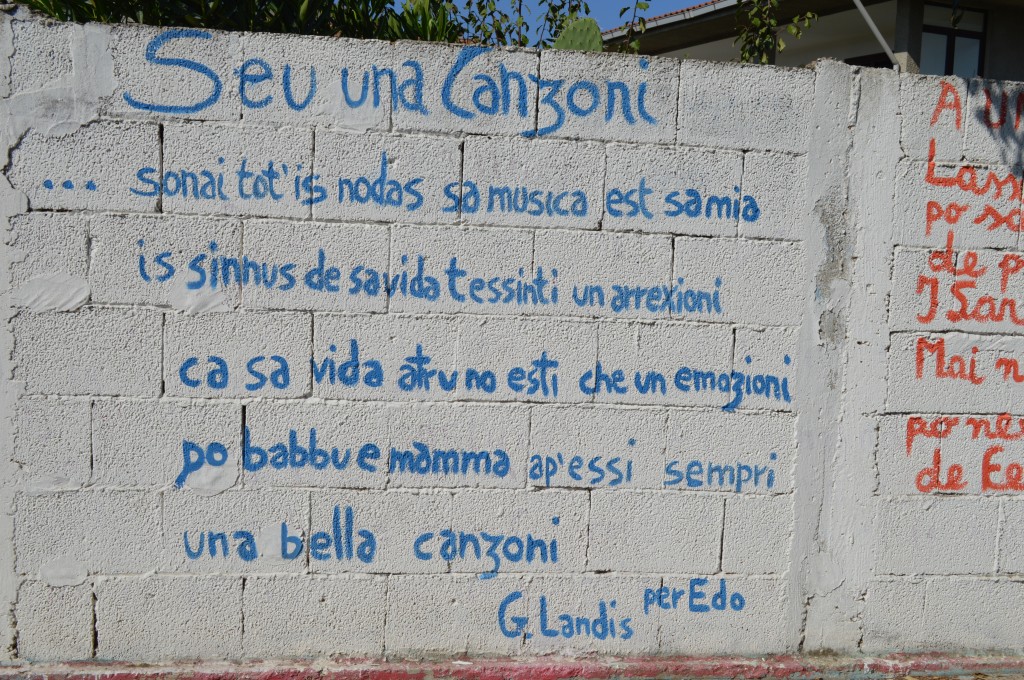 Seu una Canzoni
... sonai tot'is nodas sa musica est sa mia
is sinnus de sa vida tessinti un arrexioni
ca sa vida atru no esti che un emozioni
po babbu e mamma ap'essi sempri
una bella canzoni
G. Landis per Edo
A
po
de
Mai
po
de